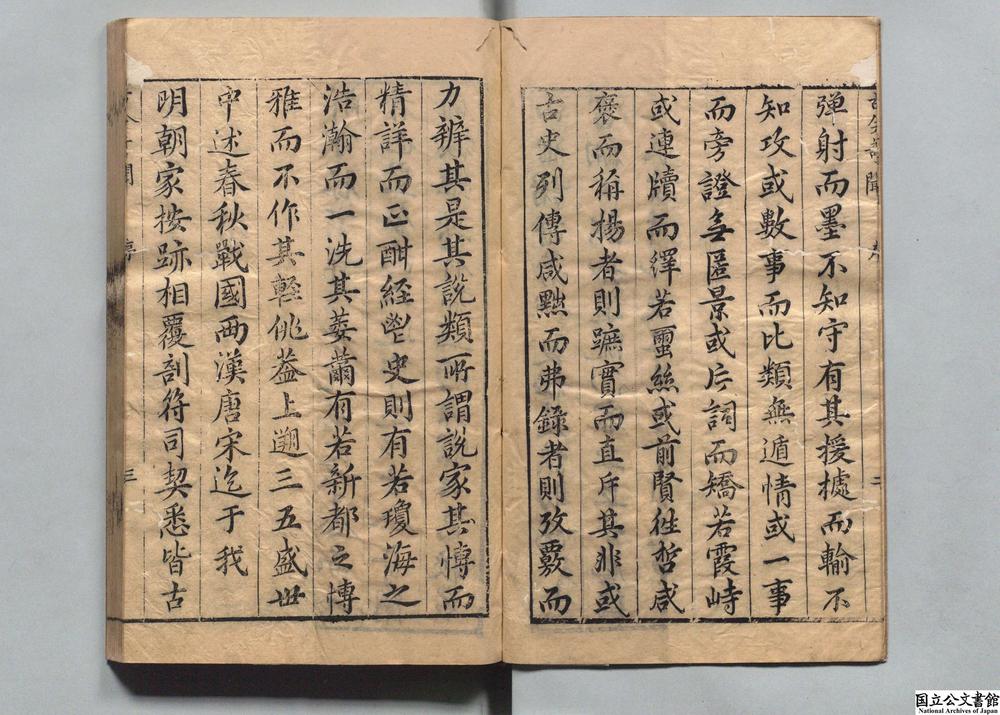 彈射而墨不知守有其援據而輸不
知攻或數事而比類無遁情或一事
而旁證無匿景或片詞而矯若霞峙
或連牘而繹若璽絲或前賢徃哲咸
褒而稱揚者則蹠實而直斥其非或
古史列傳咸㸃而弗錄者則攷覈而
力辨其是其說類所謂說家其愽而
精詳而正酣經㽜史則有若瓊海之
浩瀚而一洗其萎薾有若新都之愽
雅而不作其輕佻葢上遡三五盛世
中述春秋戰國兩漢唐宋迄于我
明朝家按跡相覆剖符司契悉皆古
三
国立公文書館
National Archives of Japan